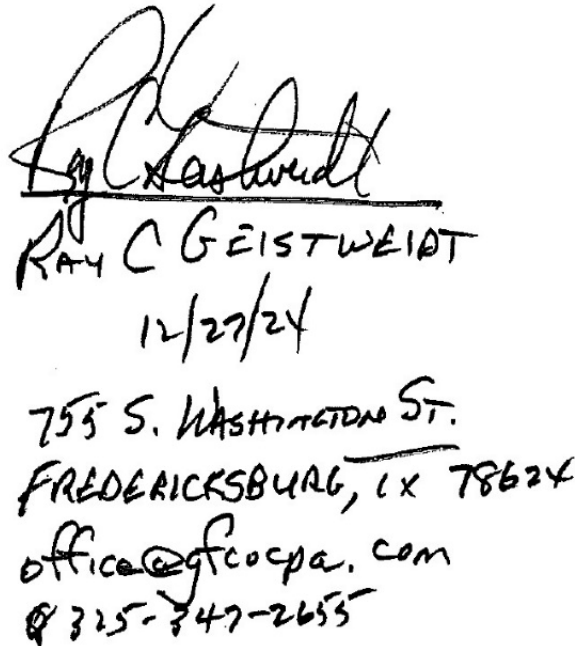 Ray C Geistweidt
RAY C GEISTWEIDT
12/27/24
755 S. WASHINGTON ST.
FREDERICKSBURG, TX 78624
office@gfcocpa.com
325-347-2655